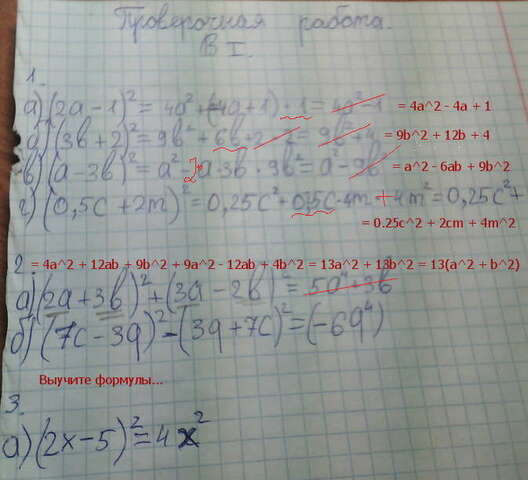 Проверочная работа.
В I.
1.
а) (2a-1)² = 4a² + (-4a+1) · 1 = 4a²-1 = 4a^2 - 4a + 1
б) (3b+2)² = 9b² + 6b·2 = 9b²+4 = 9b^2 + 12b + 4
в) (a-3b)² = a² - 2·a·3b · 9b² = a² - 9b = a^2 - 6ab + 9b^2
г) (0,5c + 2m)² = 0,25c² + 0,5c · 4m + 4m² = 0,25c² +
= 0.25c^2 + 2cm + 4m^2
2. = 4a^2 + 12ab + 9b^2 + 9a^2 - 12ab + 4b^2 = 13a^2 + 13b^2 = 13(a^2 + b^2)
а) (2a+3b)² + (3a-2b)² = 5a⁴
б) (7c-3a)² - (3a+7c)² = (-6a⁴)
Выучите формулы...
3.
а) (2x-5)² = 4x²